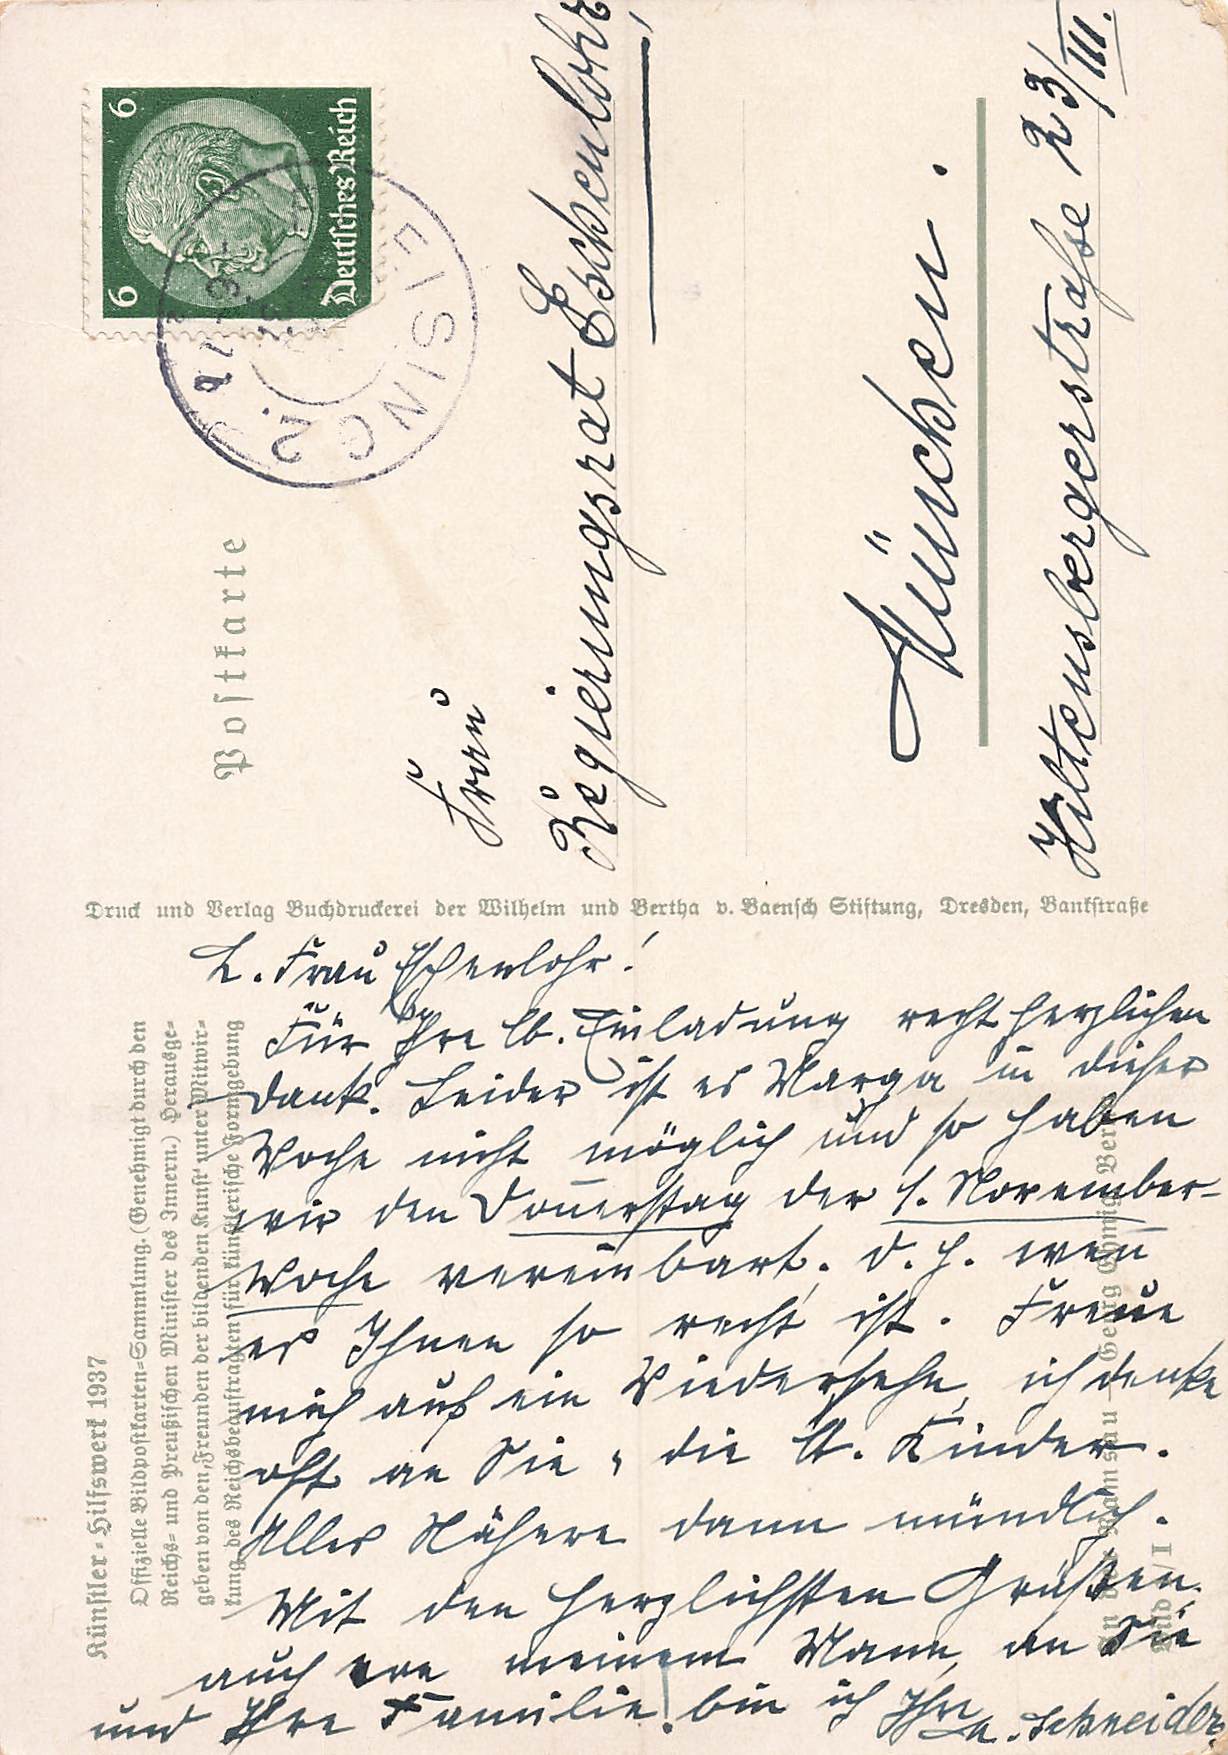 Postkarte
6 6
Deutsches Reich
EISING
2.
Frau
Regierungsrat Eschenlohr
München.
Hiltensbergerstraße 23/III.
Druck und Verlag Buchdruckerei der Wilhelm und Bertha v. Baensch Stiftung, Dresden, Bankstraße
Künstler-Hilfswerk 1937
Offizielle Bildpostkarten-Sammlung. (Genehmigt durch den
Reichs- und Preußischen Minister des Innern.) Herausge-
geben von den „Freunden der bildenden Kunst“ unter Mitwir-
kung des Reichsbeauftragten für künstlerische Formgebung
L. Frau Eschenlohr!
Für Ihre lb. Einladung recht herzlichen
Dank. Leider ist es Marga in dieser
Woche nicht möglich und so haben
wir den Donnerstag der 1. November-
Woche vereinbart. d. h. wenn
es Ihnen so recht ist. Freue
mich auf ein Wiedersehn, ich denke
oft an Sie u die lb. Kinder.
Alles Nähere dann mündlich.
Mit den herzlichsten Grüßen,
auch von meinem Mann, an Sie
und Ihre Familie! bin ich Ihre
A. Schneider.
Georg
Bild / I